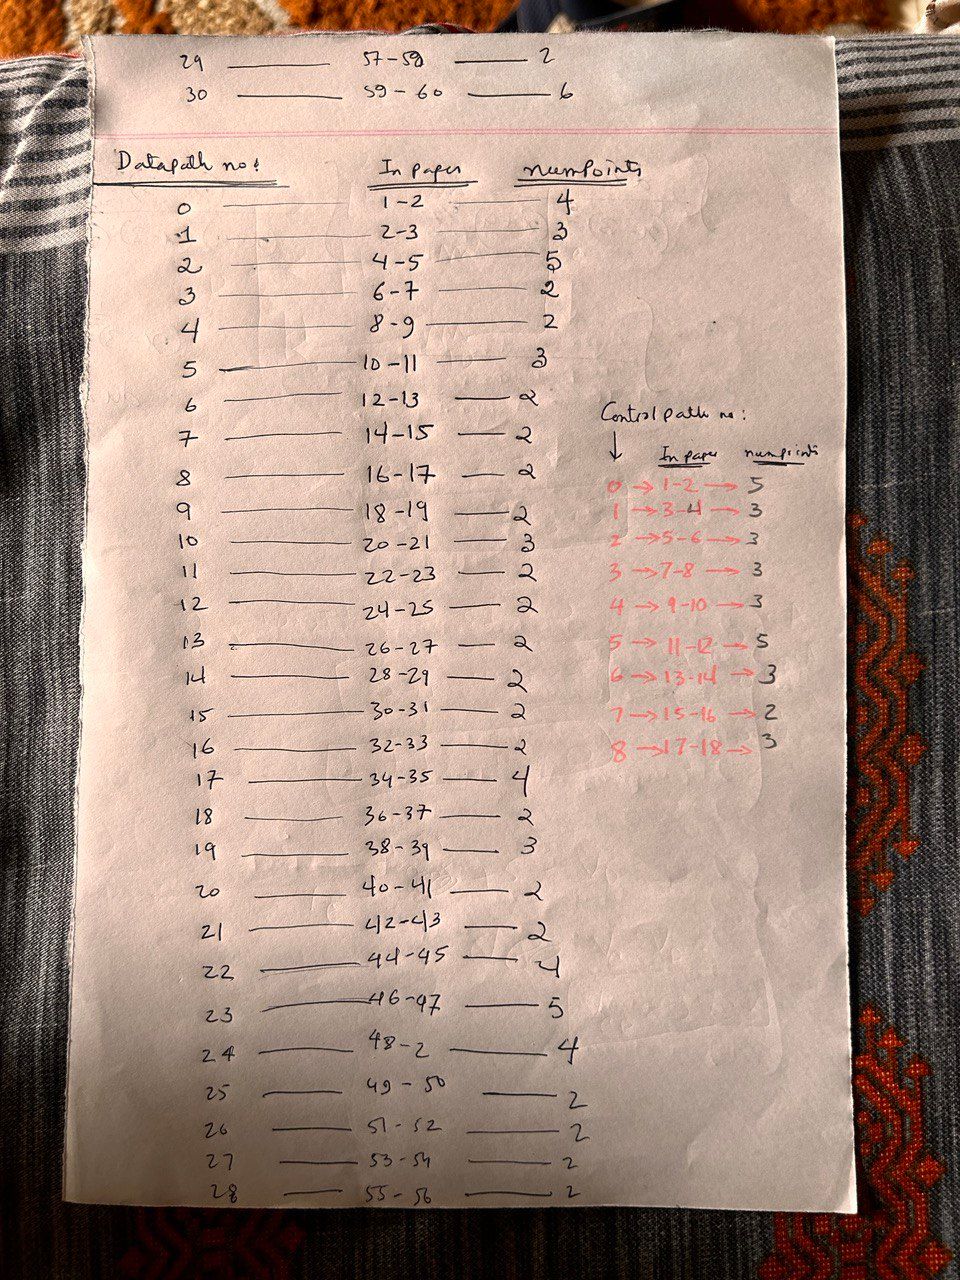 29 57-58 2
30 59-60 6
Datapath no: In paper numPoints
0 1-2 4
1 2-3 3
2 4-5 5
3 6-7 2
4 8-9 2
5 10-11 3
6 12-13 2
7 14-15 2
8 16-17 2
9 18-19 2
10 20-21 3
11 22-23 2
12 24-25 2
13 26-27 2
14 28-29 2
15 30-31 2
16 32-33 2
17 34-35 4
18 36-37 2
19 38-39 3
20 40-41 2
21 42-43 2
22 44-45 4
23 46-47 5
24 48-2 4
25 49-50 2
26 51-52 2
27 53-54 2
28 55-56 2
Control path no:
↓ In paper numpoints
0 → 1-2 → 5
1 → 3-4 → 3
2 → 5-6 → 3
3 → 7-8 → 3
4 → 9-10 → 3
5 → 11-12 → 5
6 → 13-14 → 3
7 → 15-16 → 2
8 → 17-18 → 3